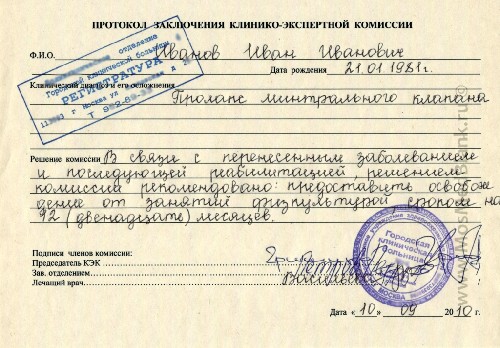 ПРОТОКОЛ ЗАКЛЮЧЕНИЯ КЛИНИКО-ЭКСПЕРТНОЙ КОМИССИИ
отделение
Городской клинической больницы
РЕГИСТРАТУРА
г Москва ул
Ф.И.О. Иванов Иван Иванович
Дата рождения 21.01.1981г.
Клинический диагноз и его осложнения
Пролапс минтрального клапана
Решение комиссии В связи с перенесенным заболеванием
и последующей реабилитацией, решением
комиссии рекомендовано: предоставить освобож
дение от занятий физкультурой сроком на
12 (двенадцать) месяцев.
Подписи членов комиссии:
Председатель КЭК
Зав. отделением
Лечащий врач
Городская
клиническая
больница
МОСКВА
Дата «10» 09 2010 г.